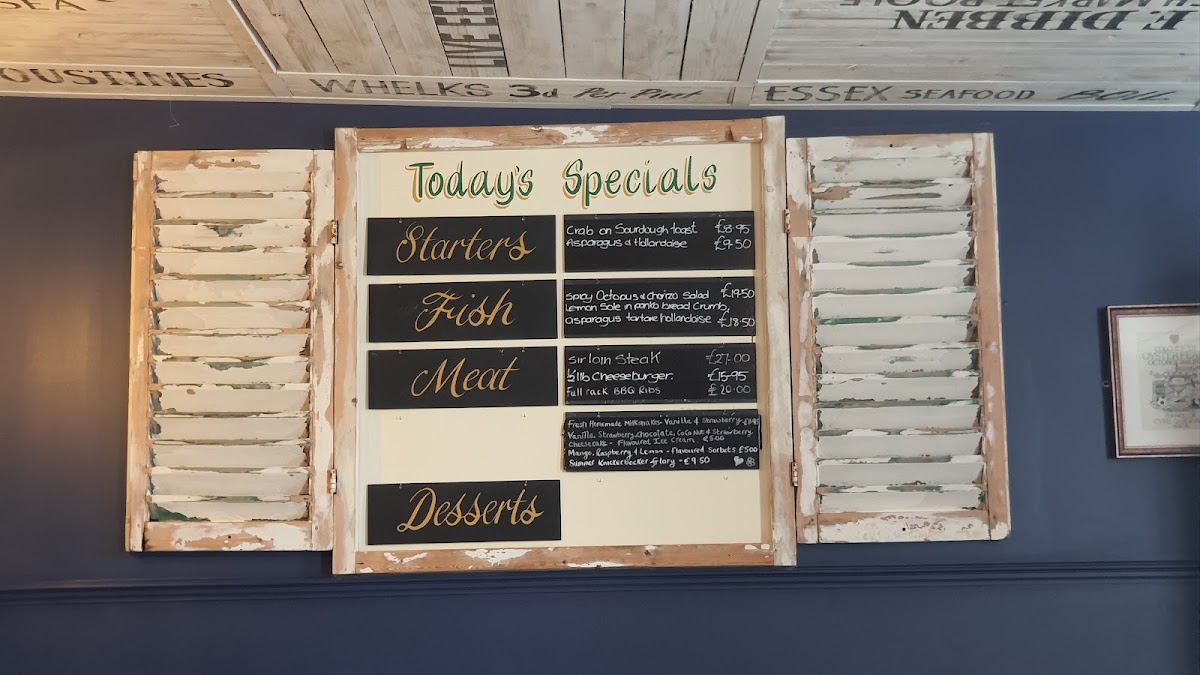 SEA
LIVE EE
MARKET POOLE
F. DIBBEN
OUSTINES
WHELKS 3d Per Pint
ESSEX SEAFOOD BOIL
Today's Specials
Starters
Crab on Sourdough toast £8.95
Asparagus & Hollandaise £9.50
Fish
Spicy Octopus & Chorizo Salad £19.50
Lemon Sole in panko bread Crumb,
asparagus tartare hollandaise £18.50
Meat
Sirloin Steak £27.00
½ lb Cheeseburger. £15.95
Full rack BBQ RIBS £20.00
Fresh Homemade Milkshakes - Vanilla & Strawberry
Vanilla, Strawberry, Chocolate, Coconut & Strawberry
Cheesecake - Flavoured Ice Cream £5.00
Mango, Raspberry & Lemon - Flavoured Sorbets £5.00
Summer Knickerbocker Glory - £9.50
Desserts